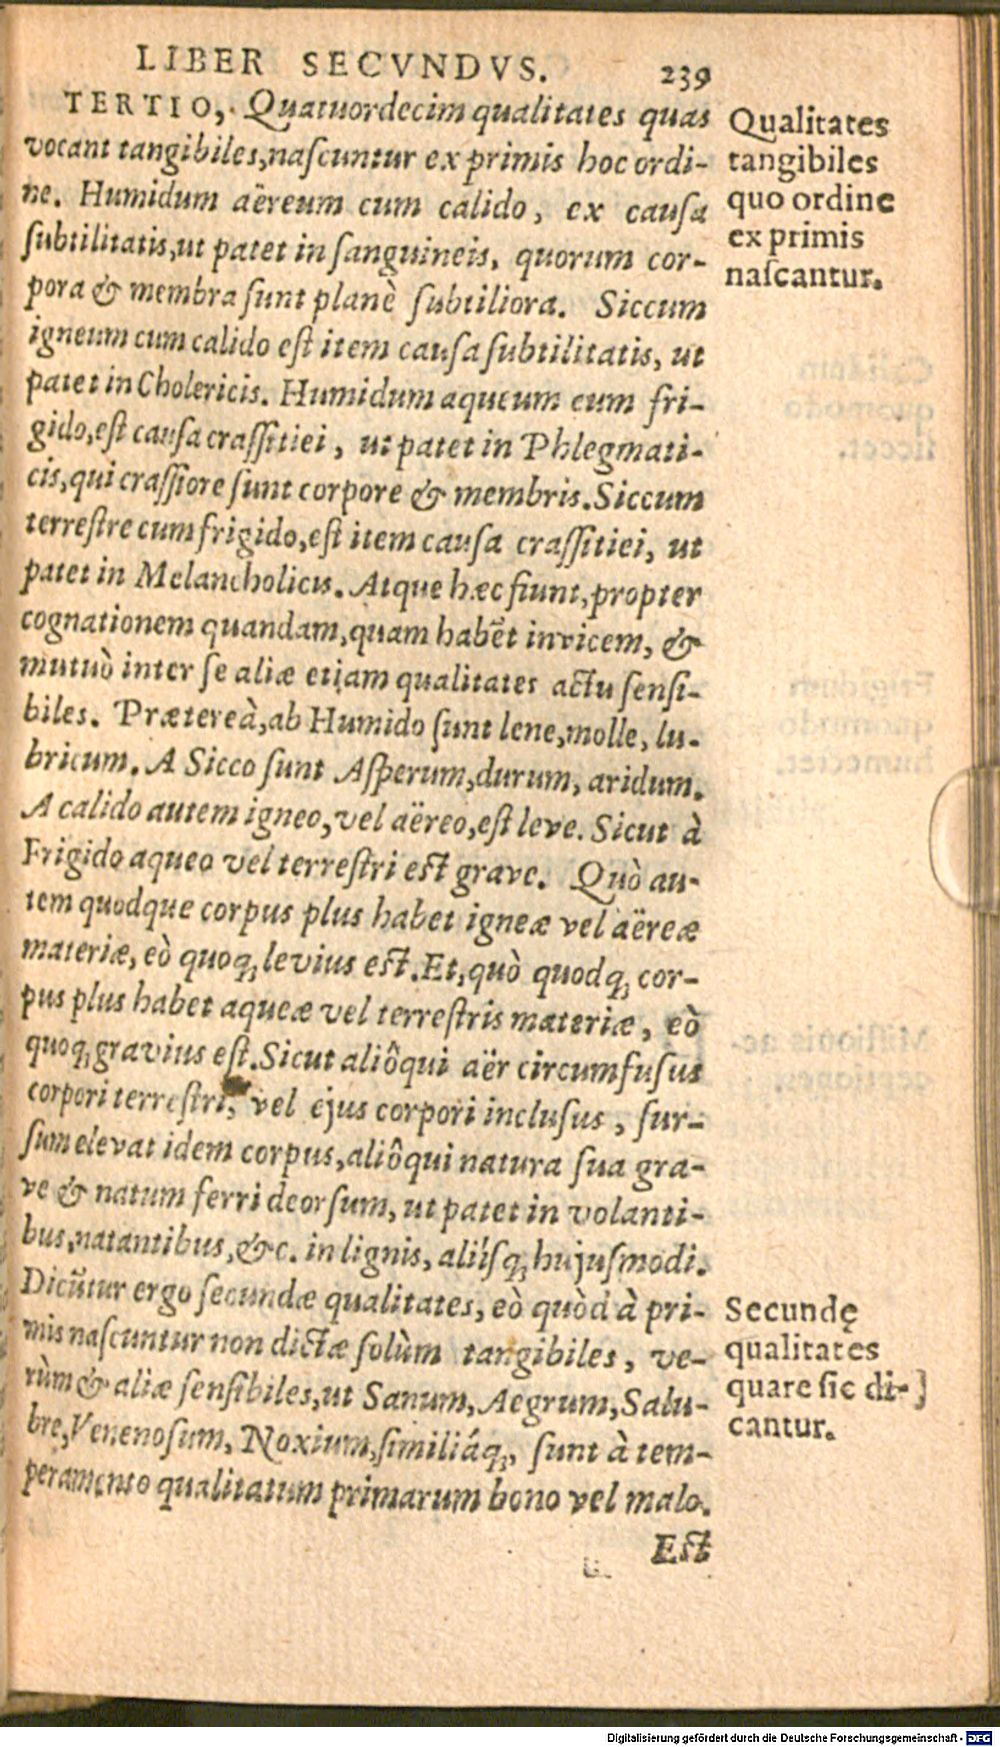 LIBER SECVNDVS. 239
TERTIO, Quatuordecim qualitates quas
vocant tangibiles, naſcuntur ex primis hoc ordi-
ne. Humidum aëreum cum calido, ex cauſa
ſubtilitatis, ut patet in ſanguineis, quorum cor-
pora & membra ſunt planè ſubtiliora. Siccum
igneum cum calido eſt item cauſa ſubtilitatis, ut
patet in Cholericis. Humidum aqueum cum fri-
gido, eſt cauſa craſſitiei, ut patet in Phlegmati-
cis, qui craſſiore ſunt corpore & membris. Siccum
terreſtre cum frigido, eſt item cauſa craſſitiei, ut
patet in Melancholicis. Atque hæc fiunt, propter
cognationem quandam, quam habēt invicem, &
mutuò inter ſe aliæ etiam qualitates actu ſenſi-
biles. Prætereà, ab Humido ſunt lene, molle, lu-
bricum. A Sicco ſunt Aſperum, durum, aridum.
A calido autem igneo, vel aëreo, eſt leve. Sicut à
Frigido aqueo vel terreſtri eſt grave. Quò au-
tem quodque corpus plus habet igneæ vel aëreæ
materiæ, eò quoq; levius eſt. Et, quò quodq; cor-
pus plus habet aqueæ vel terreſtris materiæ, eò
quoq; gravius eſt. Sicut aliôqui aër circumfuſus
corpori terreſtri, vel ejus corpori incluſus, ſur-
ſum elevat idem corpus, aliôqui natura ſua gra-
ve & natum ferri deorſum, ut patet in volanti-
bus, natantibus, &c. in lignis, aliiſq; hujuſmodi.
Dicūtur ergo ſecundæ qualitates, eò quòd à pri-
mis naſcuntur non dictæ ſolùm tangibiles, ve-
rùm & aliæ ſenſibiles, ut Sanum, Aegrum, Salu-
bre, Venenoſum, Noxium, ſimiliáq;, ſunt à tem-
peramento qualitatum primarum bono vel malo.
Eſt
Qualitates
tangibiles
quo ordine
ex primis
naſcantur.
Secundę
qualitates
quare ſic di-
cantur.
Digitalisierung gefördert durch die Deutsche Forschungsgemeinschaft - DFG